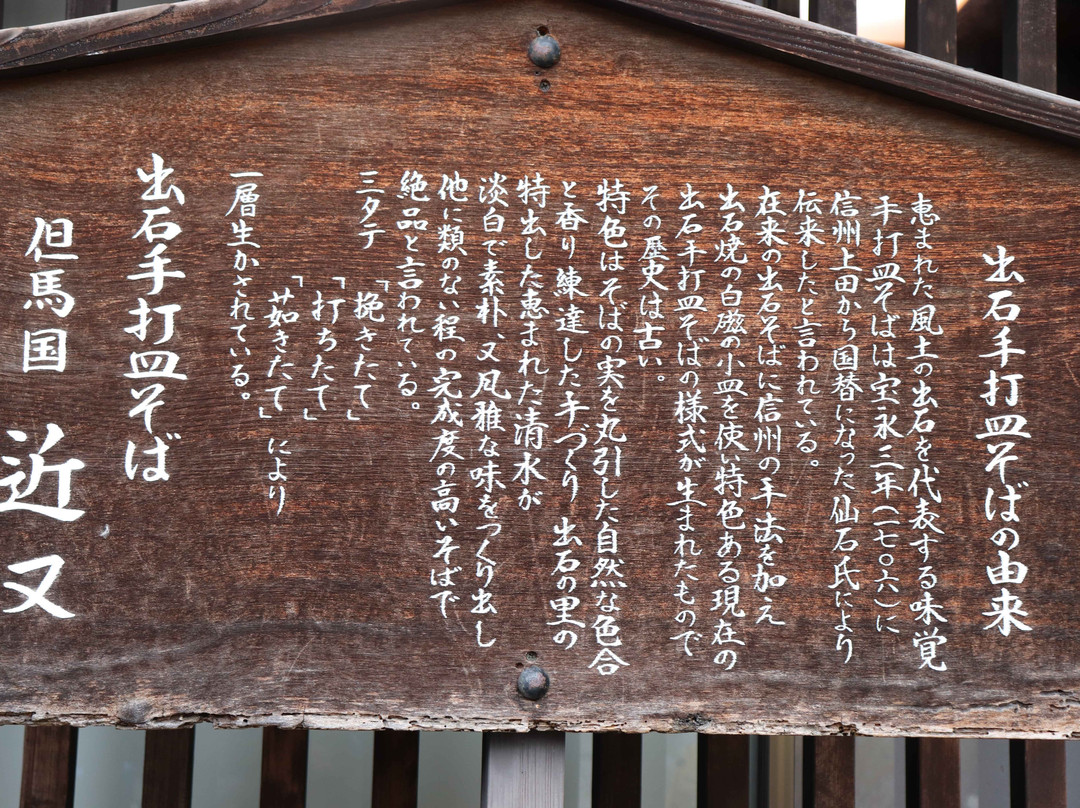 出石手打皿そばの由来
恵まれた風土の出石を代表する味覚
手打皿そばは宝永三年(一七〇六)に
信州上田から国替になった仙石氏により
伝来したと言われている。
在来の出石そばに信州の手法を加え
出石焼の白磁の小皿を使い特色ある現在の
出石手打皿そばの様式が生まれたもので
その歴史は古い。
特色はそばの実を丸引した自然な色合
と香り練達した手づくり 出石の里の
特出した恵まれた清水が
淡白で素朴、又風雅な味をつくり出し
他に類のない程の完成度の高いそばで
絶品と言われている。
三タテ「挽きたて」
「打ちたて」
「茹きたて」により
一層生かされている。
出石手打皿そば
但馬国 近又